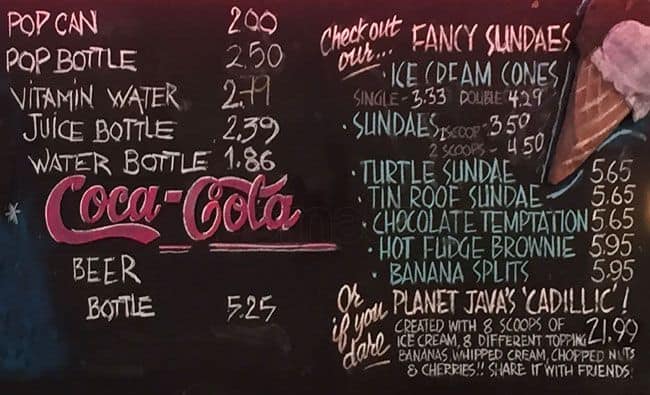 POP CAN 2.00
POP BOTTLE 2.50
VITAMIN WATER 2.79
JUICE BOTTLE 2.39
WATER BOTTLE 1.86
Coca-Cola
BEER
BOTTLE 5.25
Check out our... FANCY SUNDAES
· ICE CREAM CONES
SINGLE - 3.33 DOUBLE 4.29
· SUNDAES, 1 SCOOP - 3.50
2 SCOOPS - 4.50
· TURTLE SUNDAE 5.65
· TIN ROOF SUNDAE 5.65
· CHOCOLATE TEMPTATION 5.65
· HOT FUDGE BROWNIE 5.95
· BANANA SPLITS 5.95
Or if you dare
PLANET JAVA'S 'CADILLIC'!
CREATED WITH 8 SCOOPS OF 21.99
ICE CREAM, 8 DIFFERENT TOPPING
BANANAS, WHIPPED CREAM, CHOPPED NUTS
& CHERRIES!! SHARE IT WITH FRIENDS.